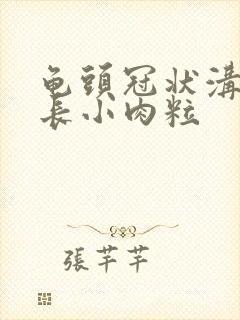 龟頭冠状溝
長小肉粒
張芊芊